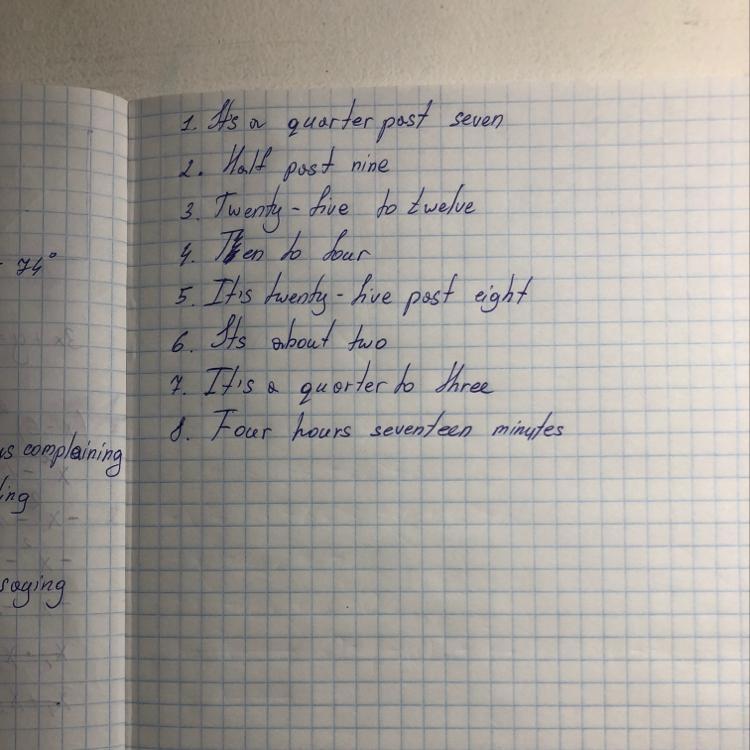 1. Its a quarter past seven
2. Half past nine
3. Twenty-five to twelve
- 74°
4. Ten to four
5. It's twenty-five past eight
6. Its about two
7. It's a quarter to three
8. Four hours seventeen minutes
complaining
saying